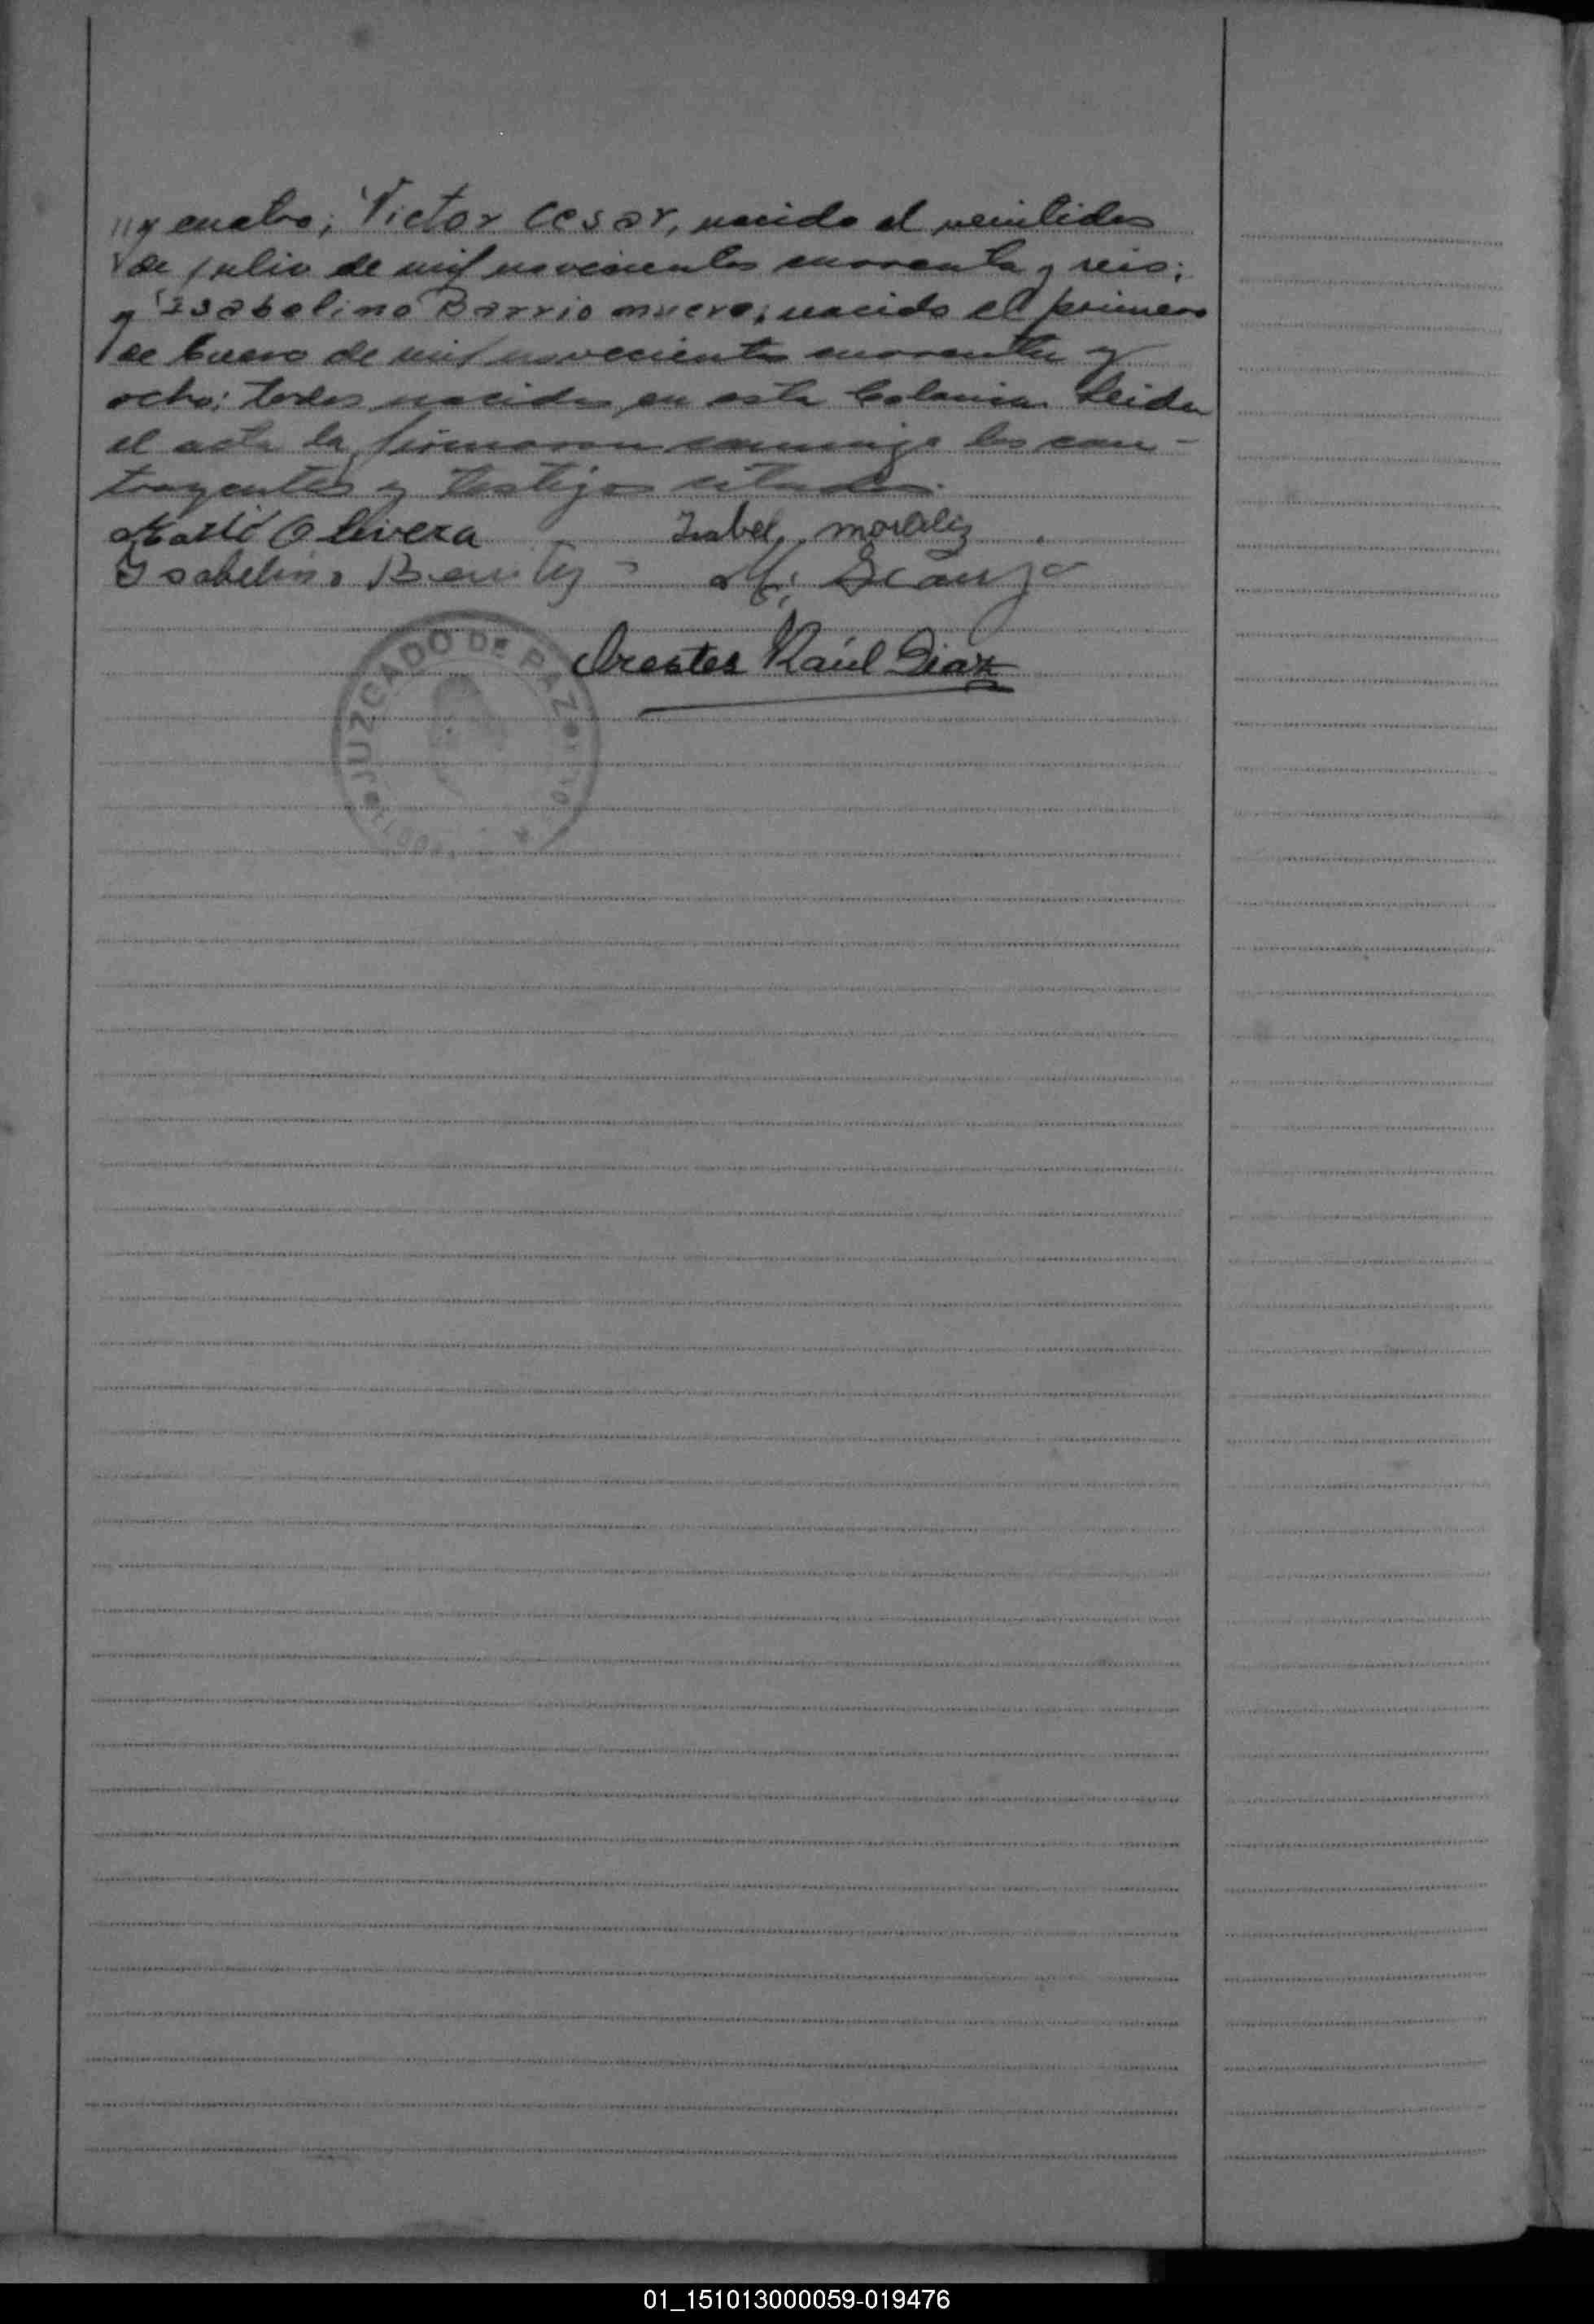 // y cuatro; Victor Cesar, nacido el veintidos
de julio de mil novecientos cuarenta y seis;
y Isabelino Barrionuevo; nacido el primero
de Enero de mil novecientos cuarenta y
ocho; todos nacidos en esta Colonia. Leida
el acta la firmaron conmigo los con-
trayentes y testigos citados.
Mario Olivera Isabel moralez
Ysabelino Benitez
Orestes Raúl Diaz
JUZGADO DE PAZ
01_151013000059-019476